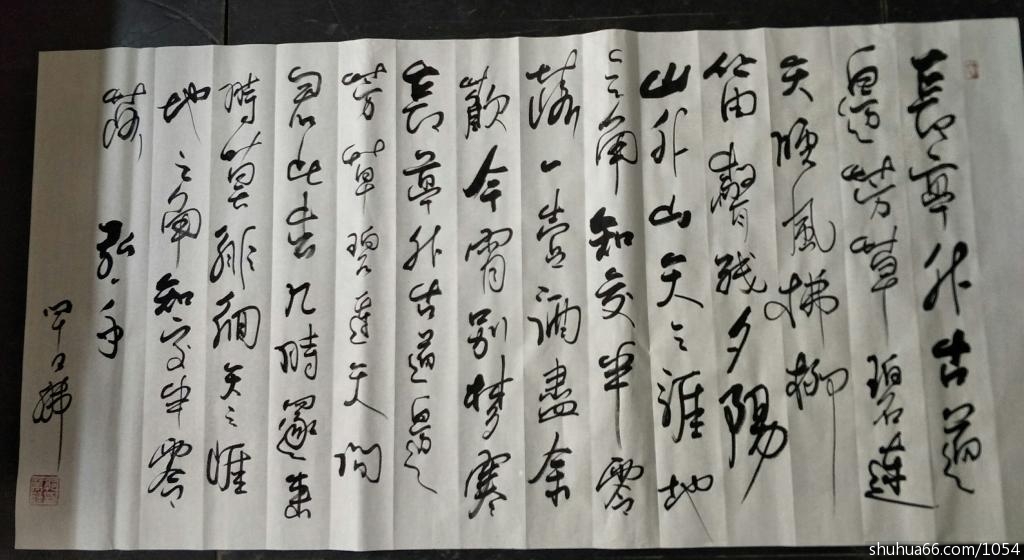 長亭外古道
邊芳草碧連
天晚風拂柳
笛聲殘夕陽
山外山天之涯地
之角知交半零
落一壺酒盡余
歡今宵别夢寒
長亭外古道邊
芳草碧連天問
君此去几時還来
時莫徘徊天之涯
地之角知交半零
落 弘
shuhua66.com/1054